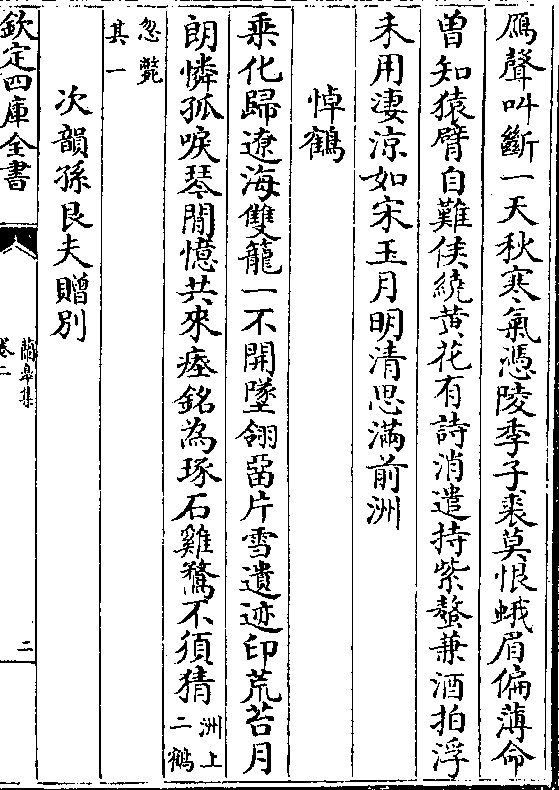 鴈聲叫斷一天秋寒氣憑陵季子裘莫恨蛾眉偏薄命
曽知猿臂自難侯繞黄花有詩消遣持紫螯兼酒拍浮
未用淒涼如宋玉月明清思滿前洲
悼鶴
乘化歸遼海雙籠一不開墜翎留片雪遺迹印荒苔月
朗憐孤唳琴閒憶共來瘞銘為琢石雞鶩不須猜洲上
二鶴
忽斃
其一
次韻孫艮夫贈別
欽定四庫全書
蘭皋集
卷二
二